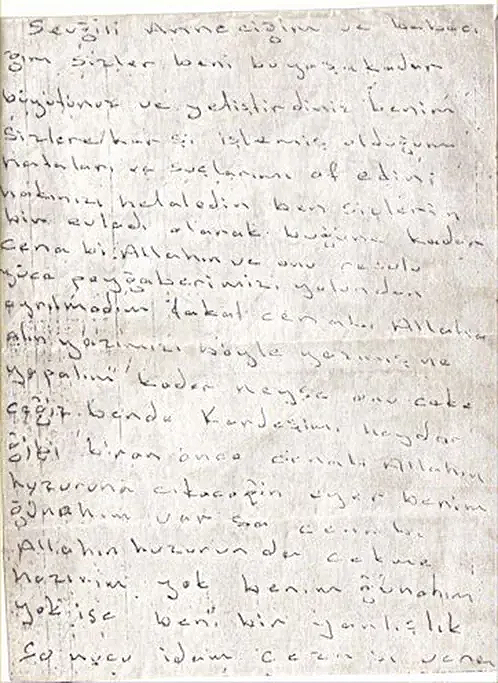 Sevğili Anneciğim ve babacı
ğım sizler beni bu yaşa kadar
büyütünüz ve yetiştirdiniz benim
sizlere karşı işlemiş olduğum
hataları ve suçlarımı af edin
hakınızı helaledin ben sizlerin
bir evladı olarak buğüne kadar
cena bi Allahın ve onu resulu
yüce peyğaberimizi yolundan
ayrılmadım fakat cenabı Allaha
alın yazımızı böyle yazmış ne
yapalım kader neyse onu çeke
ceğiz bende Kardeşim haydar
ğibi biran önce cenabı Allahın
huzuruna cıkacağın eyer benim
ğünahım var sa cena bi
Allahın huzurun da cekme
hazırım yok benim ğünahım
yok ise beni bir yanlışlık
so nucu idam ceza sı veren